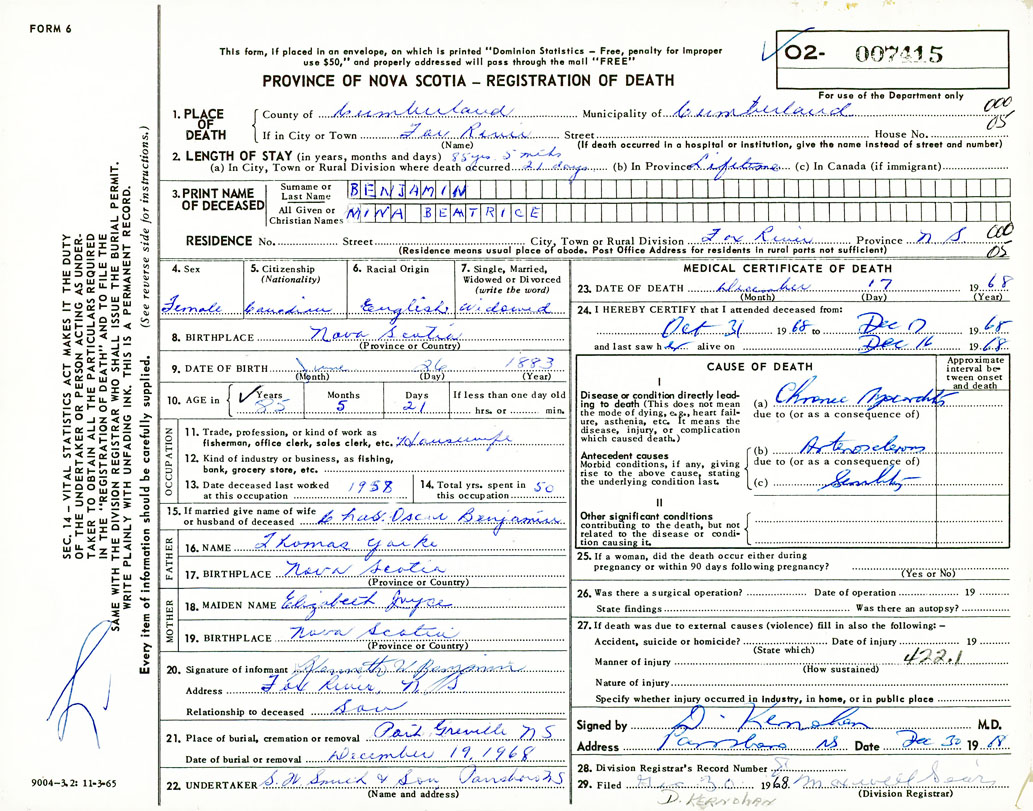 FORM 6
This form, if placed in an envelope, on which is printed "Dominion Statistics – Free, penalty for improper
use $50," and properly addressed will pass through the mail "FREE"
PROVINCE OF NOVA SCOTIA – REGISTRATION OF DEATH
O2- 007415
For use of the Department only
000
05
1. PLACE OF DEATH
County of Cumberland Municipality of Cumberland
If in City or Town Fox River Street House No.
(Name) (If death occurred in a hospital or institution, give the name instead of street and number)
2. LENGTH OF STAY (in years, months and days) 85 yrs. 5 mths
(a) In City, Town or Rural Division where death occurred 21 days (b) In Province Lifetime (c) In Canada (if immigrant)
3. PRINT NAME OF DECEASED
Surname or Last Name BENJAMIN
All Given or Christian Names MINA BEATRICE
RESIDENCE No. Street City, Town or Rural Division Fox River Province N S
(Residence means usual place of abode. Post Office Address for residents in rural parts not sufficient)
000
05
4. Sex Female
5. Citizenship (Nationality) Canadian
6. Racial Origin English
7. Single, Married, Widowed or Divorced (write the word) Widowed
8. BIRTHPLACE Nova Scotia
(Province or Country)
9. DATE OF BIRTH June 26 1883
(Month) (Day) (Year)
10. AGE in Years 85 Months 5 Days 21 If less than one day old hrs. or min.
OCCUPATION
11. Trade, profession, or kind of work as
fisherman, office clerk, sales clerk, etc. Housewife
12. Kind of industry or business, as fishing,
bank, grocery store, etc.
13. Date deceased last worked at this occupation 1958
14. Total yrs. spent in this occupation 50
15. If married give name of wife
or husband of deceased Chas. Oscar Benjamin
FATHER
16. NAME Thomas Yorke
17. BIRTHPLACE Nova Scotia
(Province or Country)
MOTHER
18. MAIDEN NAME Elizabeth
19. BIRTHPLACE Nova Scotia
(Province or Country)
20. Signature of informant Benjamin
Address Fox River, N S
Relationship to deceased Son
21. Place of burial, cremation or removal Port Greville N S
Date of burial or removal December 19, 1968
22. UNDERTAKER S. W. Smith & Son, Parrsboro NS
(Name and address)
MEDICAL CERTIFICATE OF DEATH
23. DATE OF DEATH December 17 1968
(Month) (Day) (Year)
24. I HEREBY CERTIFY that I attended deceased from:
Oct 31 1968 to Dec 17 1968
and last saw her alive on Dec 16 1968
CAUSE OF DEATH
Approximate interval between onset and death
I
Disease or condition directly leading to death (This does not mean the mode of dying, e.g., heart failure, asthenia, etc. It means the disease, injury, or complication which caused death.)
(a) Chronic Myocarditis
due to (or as a consequence of)
Antecedent causes
Morbid conditions, if any, giving rise to the above cause, stating the underlying condition last.
(b) Arteriosclerosis
due to (or as a consequence of)
(c) Senility
II
Other significant conditions
contributing to the death, but not related to the disease or condition causing it.
25. If a woman, did the death occur either during
pregnancy or within 90 days following pregnancy?
(Yes or No)
26. Was there a surgical operation? Date of operation 19
State findings Was there an autopsy?
27. If death was due to external causes (violence) fill in also the following: –
Accident, suicide or homicide? Date of injury 19
(State which)
Manner of injury 422.1
(How sustained)
Nature of injury
Specify whether injury occurred in industry, in home, or in public place
Signed by D. Kernohan M.D.
Address Parrsboro NS Date Dec 30 1968
28. Division Registrar's Record Number
29. Filed 30 1968 Maxwell
(Division Registrar)
D. KERNOHAN
SEC. 14 – VITAL STATISTICS ACT MAKES IT THE DUTY
OF THE UNDERTAKER OR PERSON ACTING AS UNDER-
TAKER TO OBTAIN ALL THE PARTICULARS REQUIRED
IN THE "REGISTRATION OF DEATH" AND TO FILE THE
SAME WITH THE DIVISION REGISTRAR WHO SHALL ISSUE THE BURIAL PERMIT.
WRITE PLAINLY WITH UNFADING INK. THIS IS A PERMANENT RECORD.
Every item of information should be carefully supplied. (See reverse side for instructions.)
9004-3.2: 11-3-65